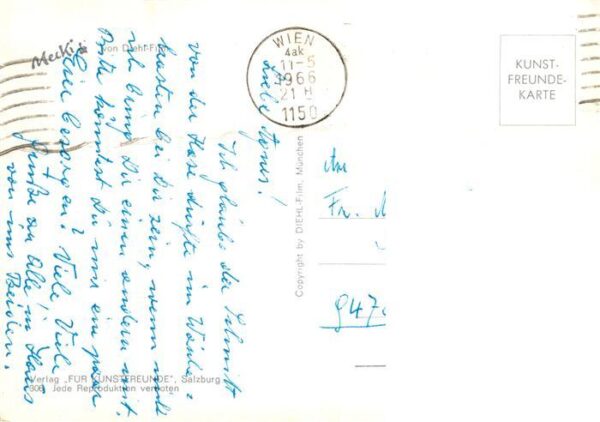 Mecki
von Diehl-Film
WIEN
4ak
11-5
1966
21 H
1150
KUNST-
FREUNDE-
KARTE
Liebe Agnes!
Ich glaube der Schnitt
von der Hose dürfte im Wäsche-
kasten bei Dir sein, wenn nicht
ich bring Dir einen anderen mit.
Bitte könntest Du mir ein paar
Eier besorgen? Viele Viele
Grüße an Alle in Haus
von uns Beiden.
An
Fr.
947
Copyright by DIEHL-Film, München
Verlag „FÜR KUNSTFREUNDE", Salzburg
Jede Reproduktion verboten